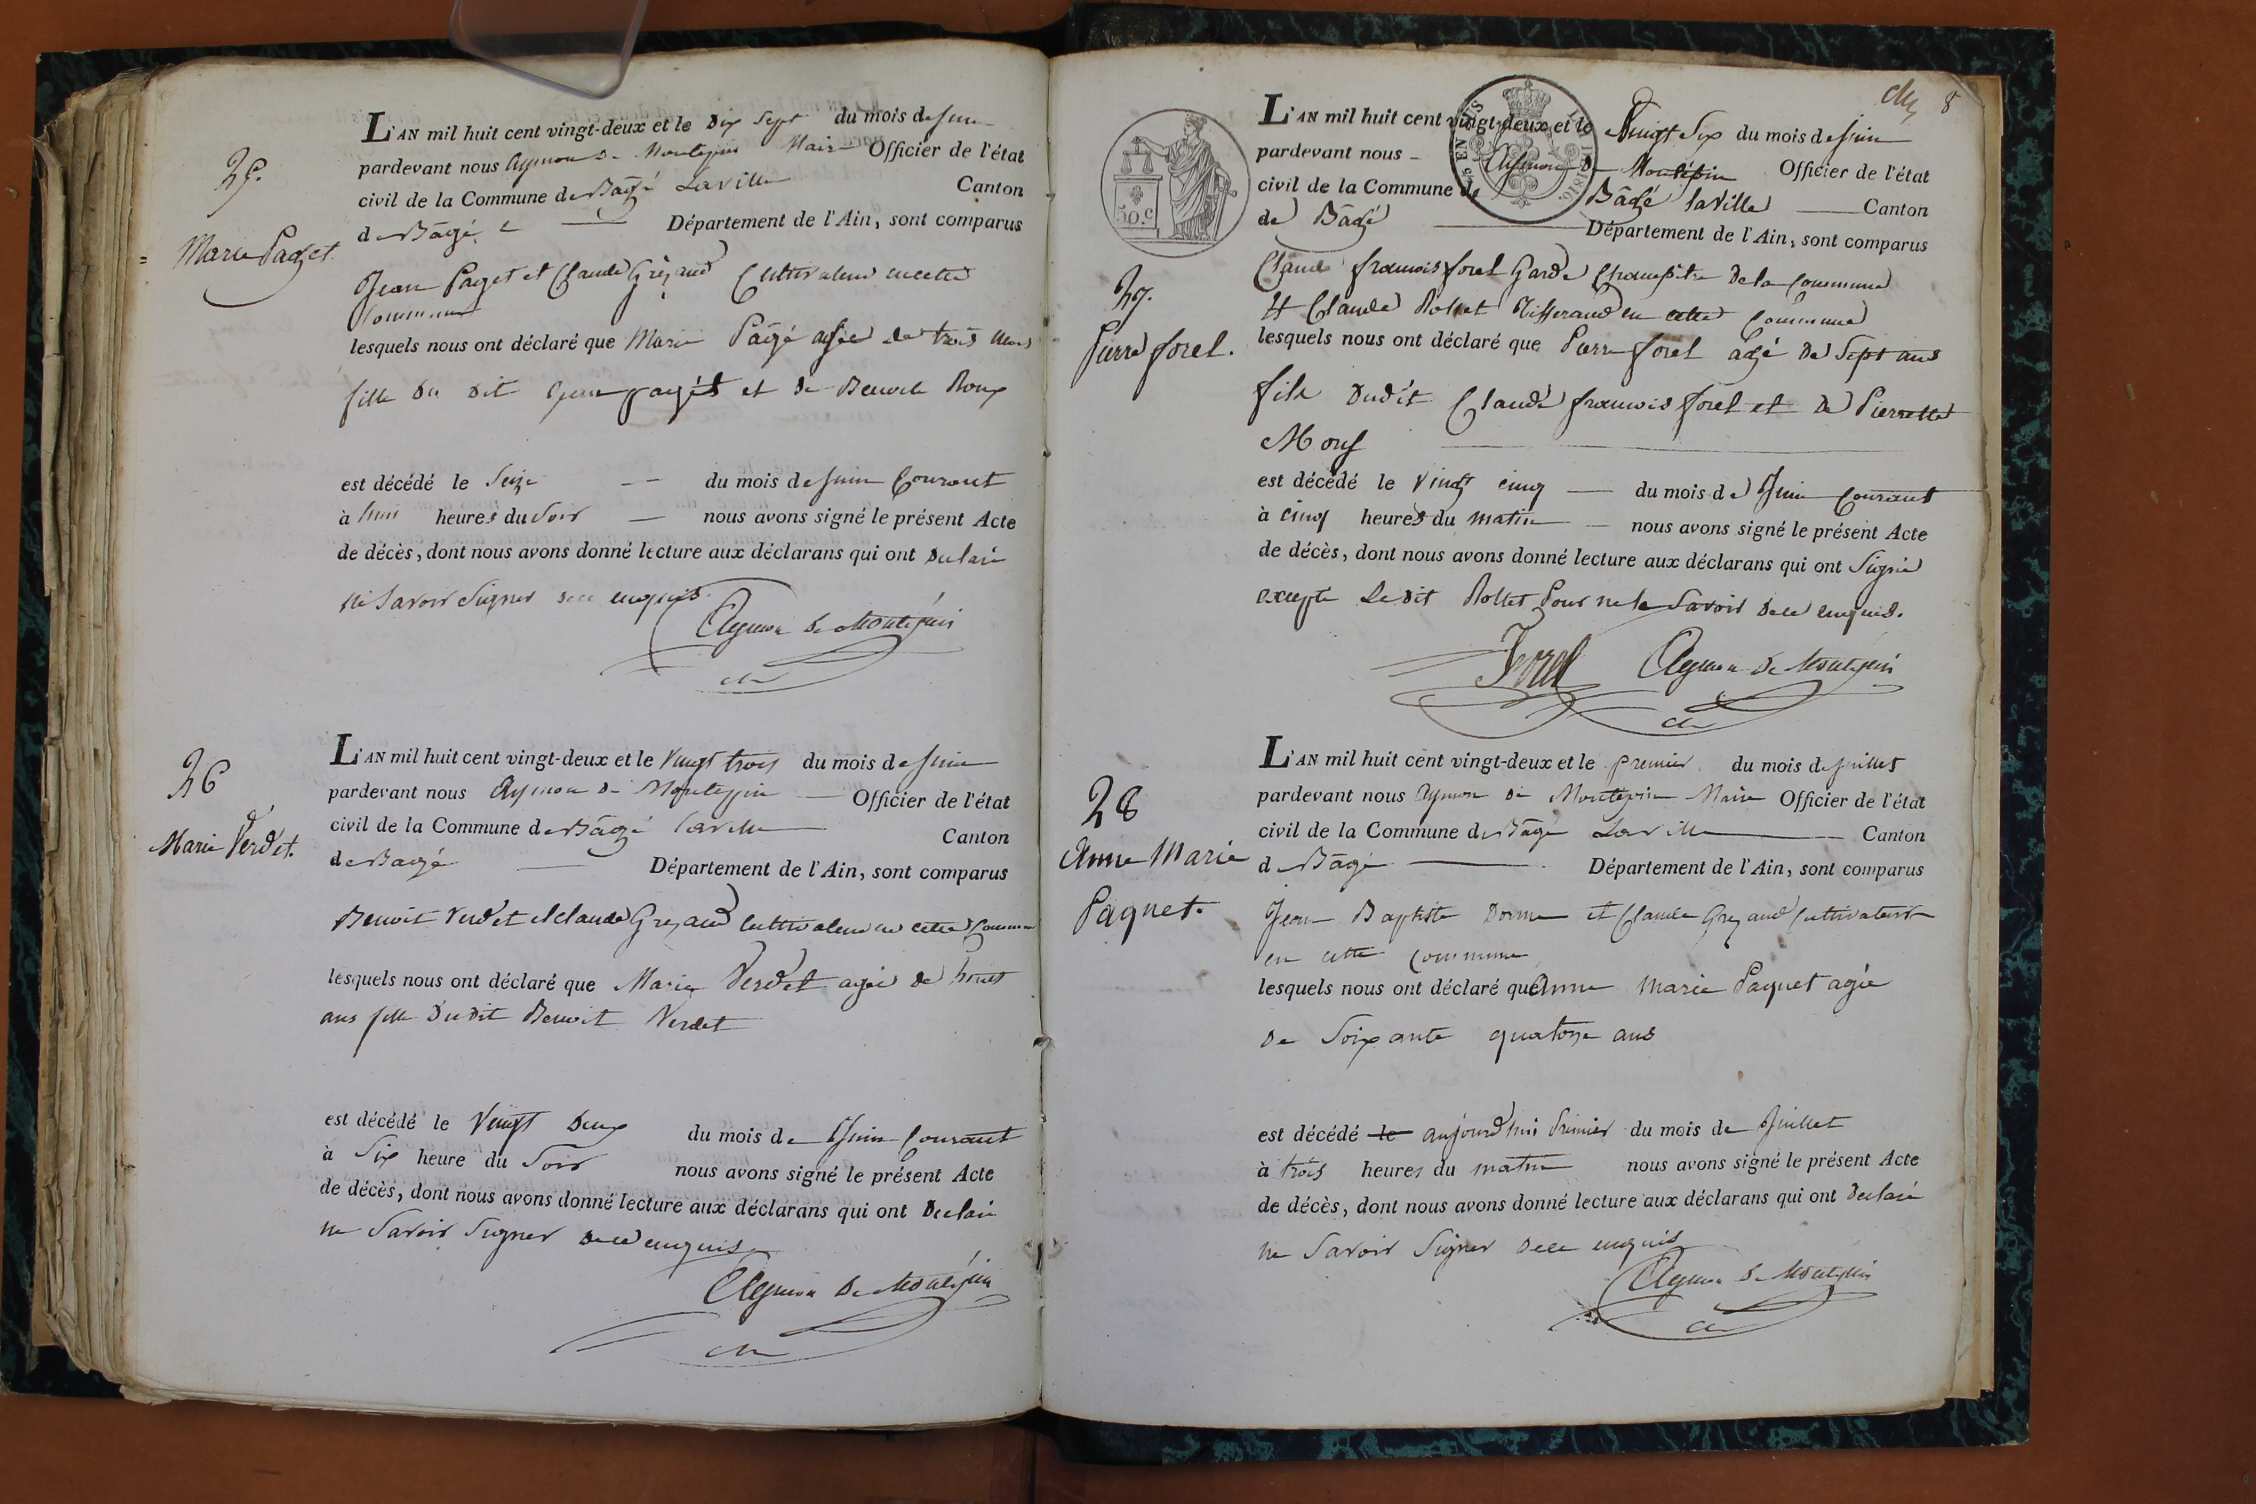 25.
Marie Paget.
L'AN mil huit cent vingt-deux et le Dix Sept du mois de Juin
pardevant nous Aymon de Montepin Maire Officier de l'état
civil de la Commune de Bâgé Laville Canton
de Bâgé Département de l'Ain, sont comparus
Jean Paget et Claude Greyaud Cultivateurs en cette
Commune
lesquels nous ont déclaré que Marie Pagé agée de trois mois
fille du dit Jean pagét et de Benoite Roux
est décédé le Seize du mois de Juin Courant
à huit heures du Soir nous avons signé le présent Acte
de décès, dont nous avons donné lecture aux déclarans qui ont Declaré
ne Savoir Signer de ce enquis.
Aymon de Montépin
26
Marie Verdet.
L'AN mil huit cent vingt-deux et le Vingt trois du mois de Juin
pardevant nous Aymon de Montepin Officier de l'état
civil de la Commune de Bâgé laville Canton
de Bagé Département de l'Ain, sont comparus
Benoit Verdet et Claude Greyaud Cultivateurs en cette Commune
lesquels nous ont déclaré que Marie Verdet agée de
ans fille Dudit Benoit Verdet
est décédé le Vingt Deux du mois de Juin Courant
à Six heure du Soir nous avons signé le présent Acte
de décès, dont nous avons donné lecture aux déclarans qui ont Declaré
ne Savoir Signer de ce enquis
Aymon de Montépin
8
50.c
27.
Pierre forel.
L'AN mil huit cent vingt-deux et le Vingt Six du mois de Juin
pardevant nous Aymon de Montépin Officier de l'état
civil de la Commune de Bâgé laVille Canton
de Bâgé Département de l'Ain, sont comparus
Claude francois forel Garde Champêtre de la Commune
Et Claude Rollet Tisserand en cette Commune
lesquels nous ont déclaré que Pierre forel agé de Sept ans
fils dudit Claude francois forel et de Pierrette
est décédé le Vingt cinq du mois de Juin Courant
à cinq heures du matin nous avons signé le présent Acte
de décès, dont nous avons donné lecture aux déclarans qui ont Signé
excepte Le dit Rollet Pour ne le Savoir de ce enquis.
Forel Aymon de Montépin
28
Anne Marie
Paquet.
L'AN mil huit cent vingt-deux et le premier du mois de Juillet
pardevant nous Aymon de Montepin Maire Officier de l'état
civil de la Commune de Bâgé Laville Canton
de Bâgé Département de l'Ain, sont comparus
Jean Baptiste et Claude Greyaud Cultivateurs
en cette Commune
lesquels nous ont déclaré que Anne Marie Paquet agée
de Soixante quatorze ans
est décédé le aujourd'hui Premier du mois de Juillet
à trois heures du matin nous avons signé le présent Acte
de décès, dont nous avons donné lecture aux déclarans qui ont Declaré
ne Savoir Signer de ce enquis
Aymon de Montépin